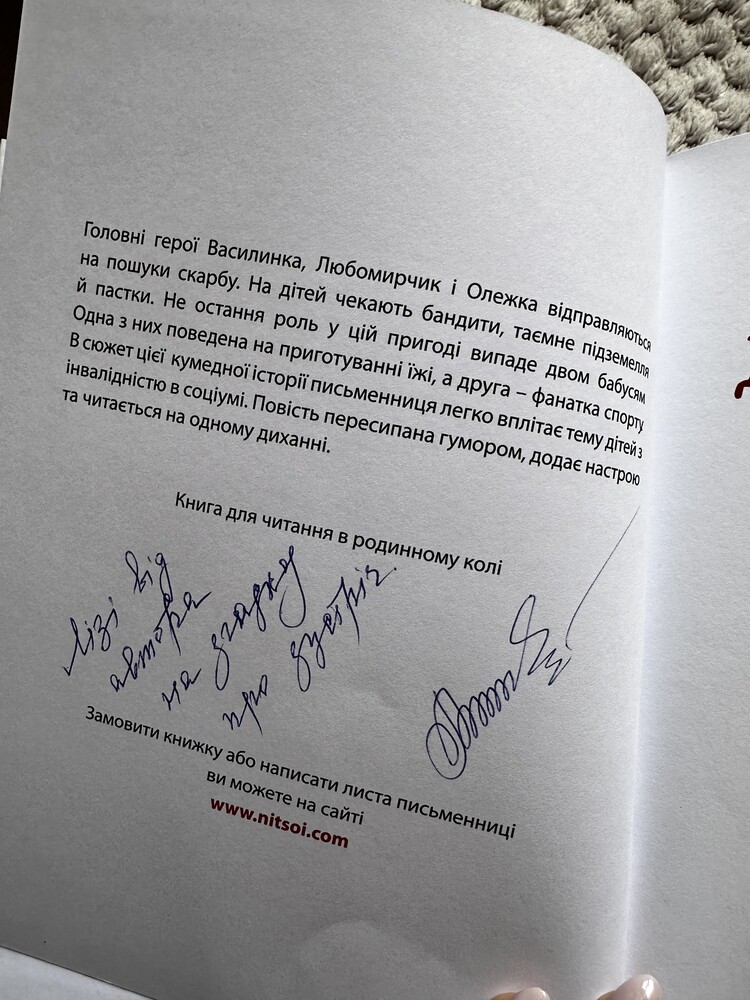 Головні герої Василинка, Любомирчик і Олежка відправляються
на пошуки скарбу. На дітей чекають бандити, таємне підземелля
й пастки. Не остання роль у цій пригоді випаде двом бабусям
Одна з них поведена на приготуванні їжі, а друга – фанатка спорту
В сюжет цієї кумедної історії письменниця легко вплітає тему дітей з
інвалідністю в соціумі. Повість пересипана гумором, додає настрою
та читається на одному диханні.
Книга для читання в родинному колі
Лізі від
автора
на згадку
про зустріч.
Замовити книжку або написати листа письменниці
ви можете на сайті
www.nitsoi.com